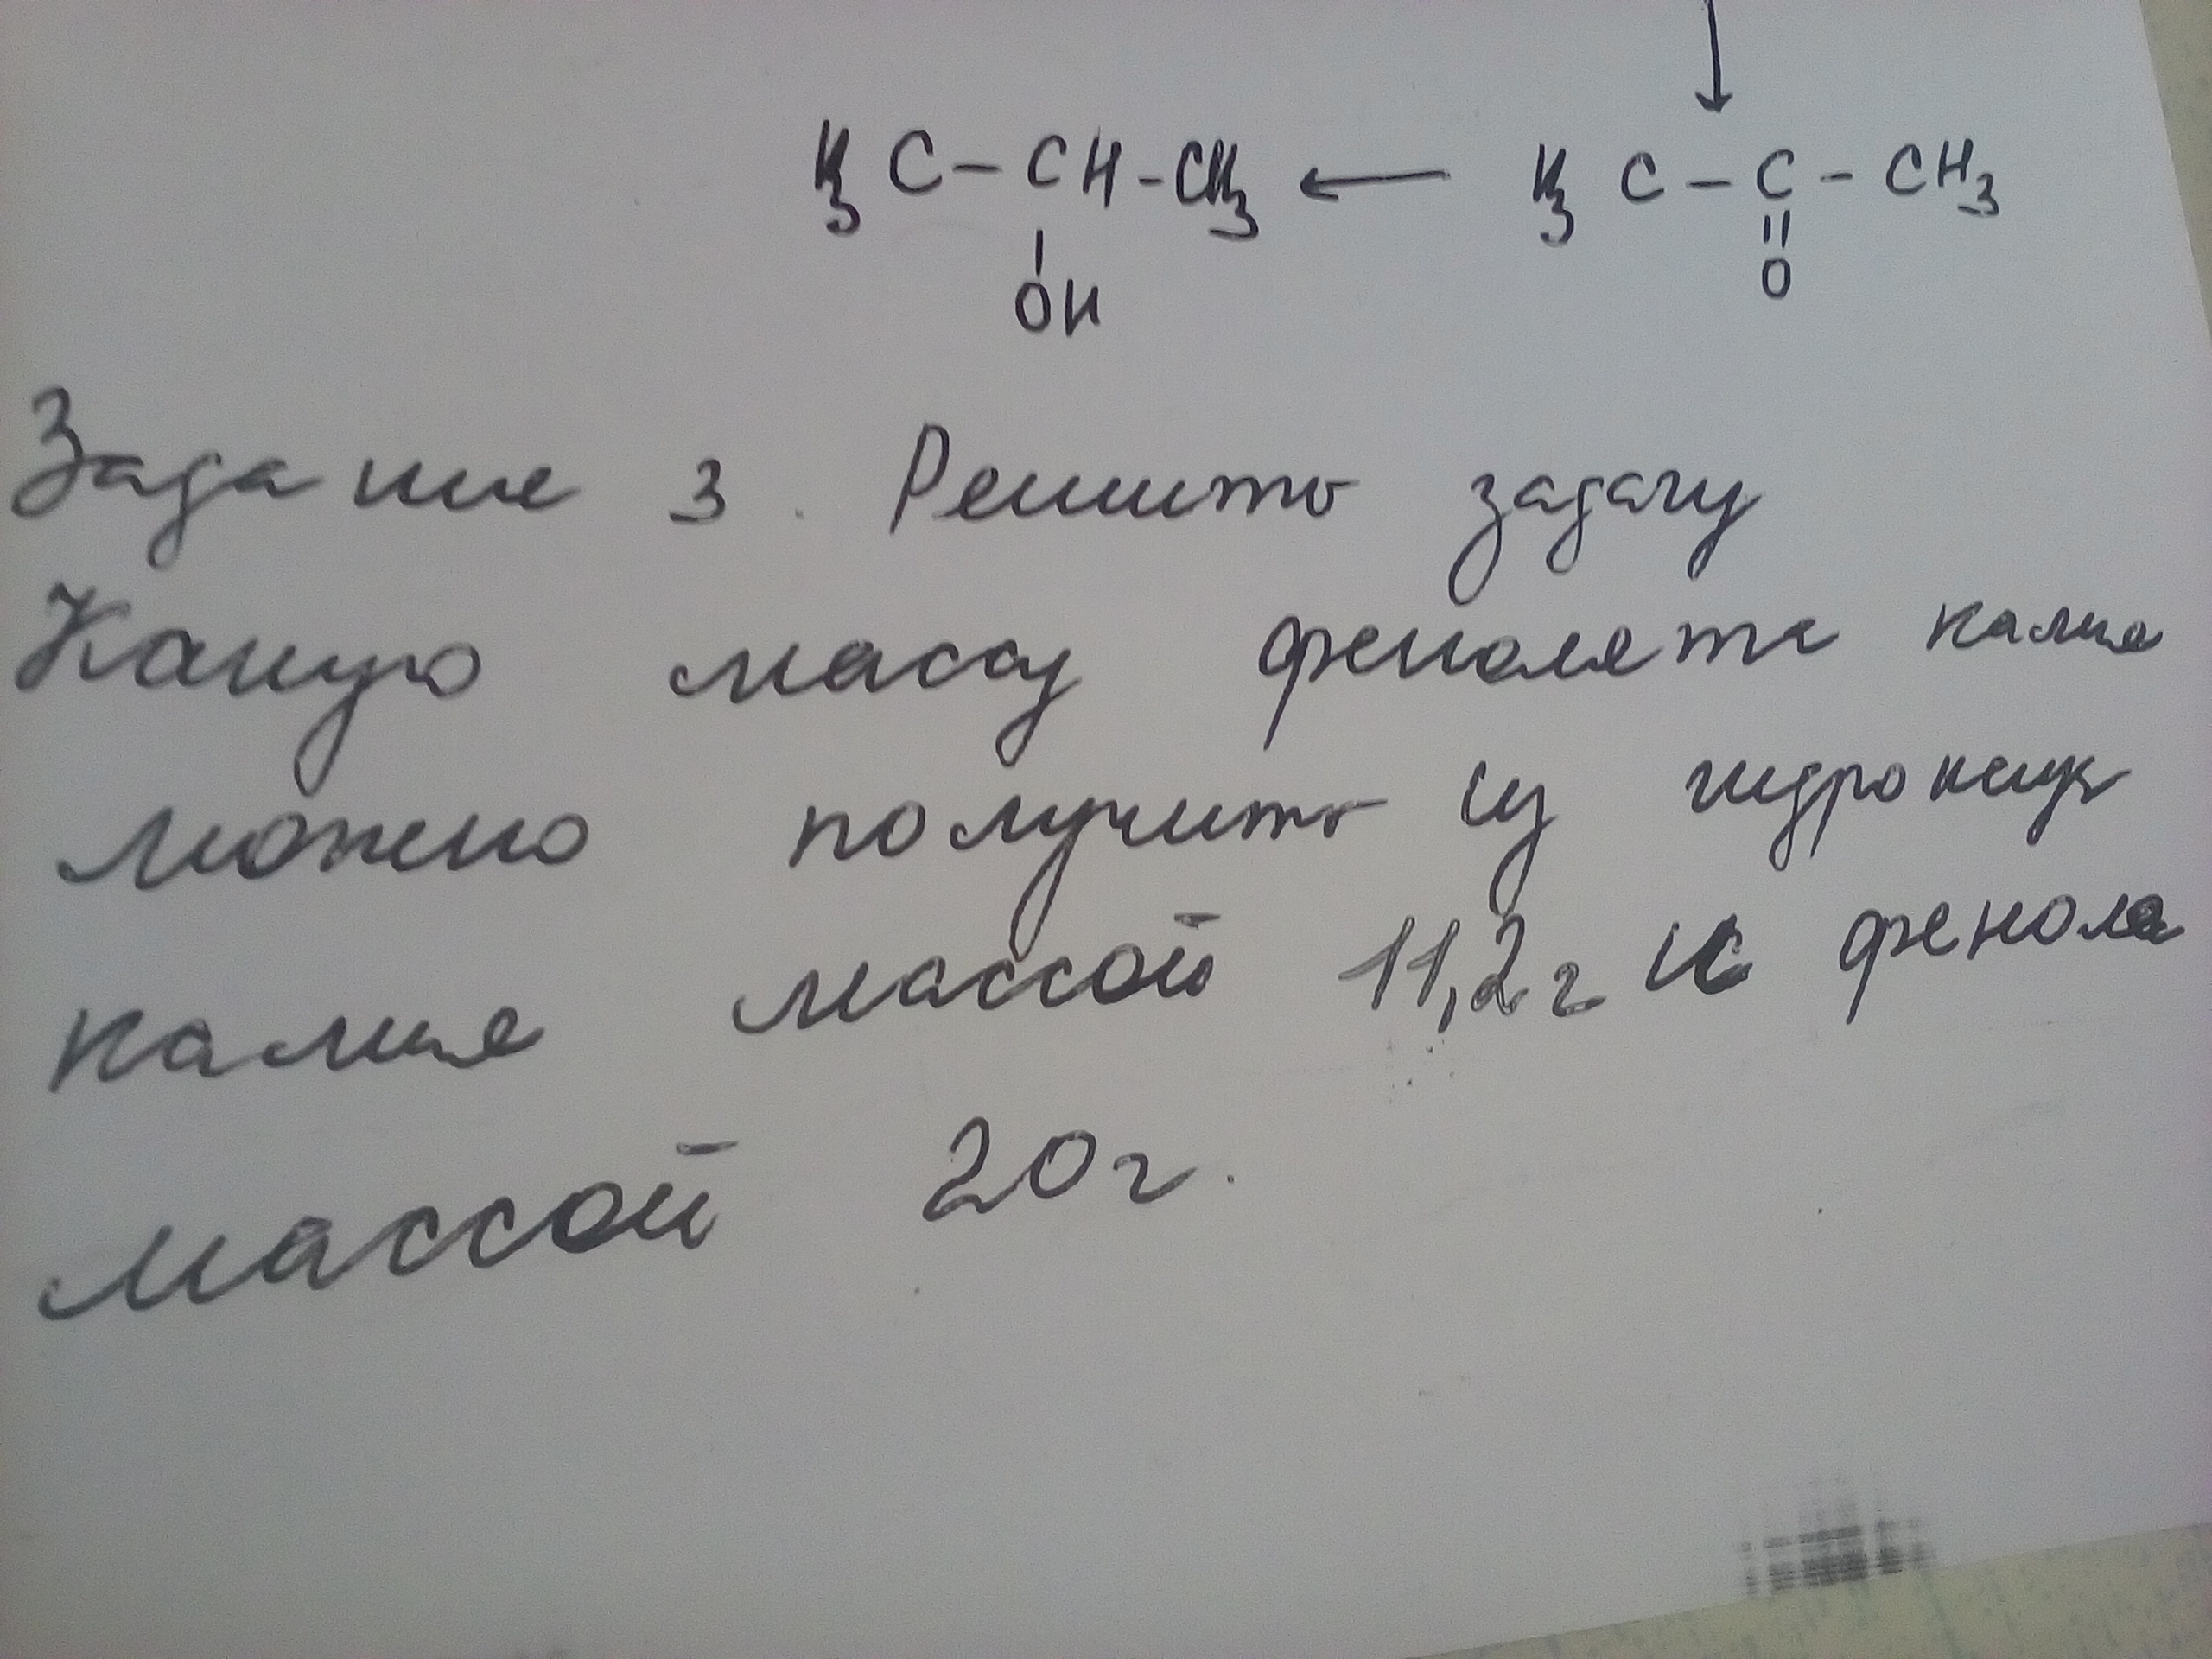 H₃C – CH – CH₃ ← H₃C – C – CH₃
OH O
Задание 3. Решить задачу
Какую массу фенолята калия
можно получить из гидроксида
калия массой 11,2 г и фенола
массой 20 г.